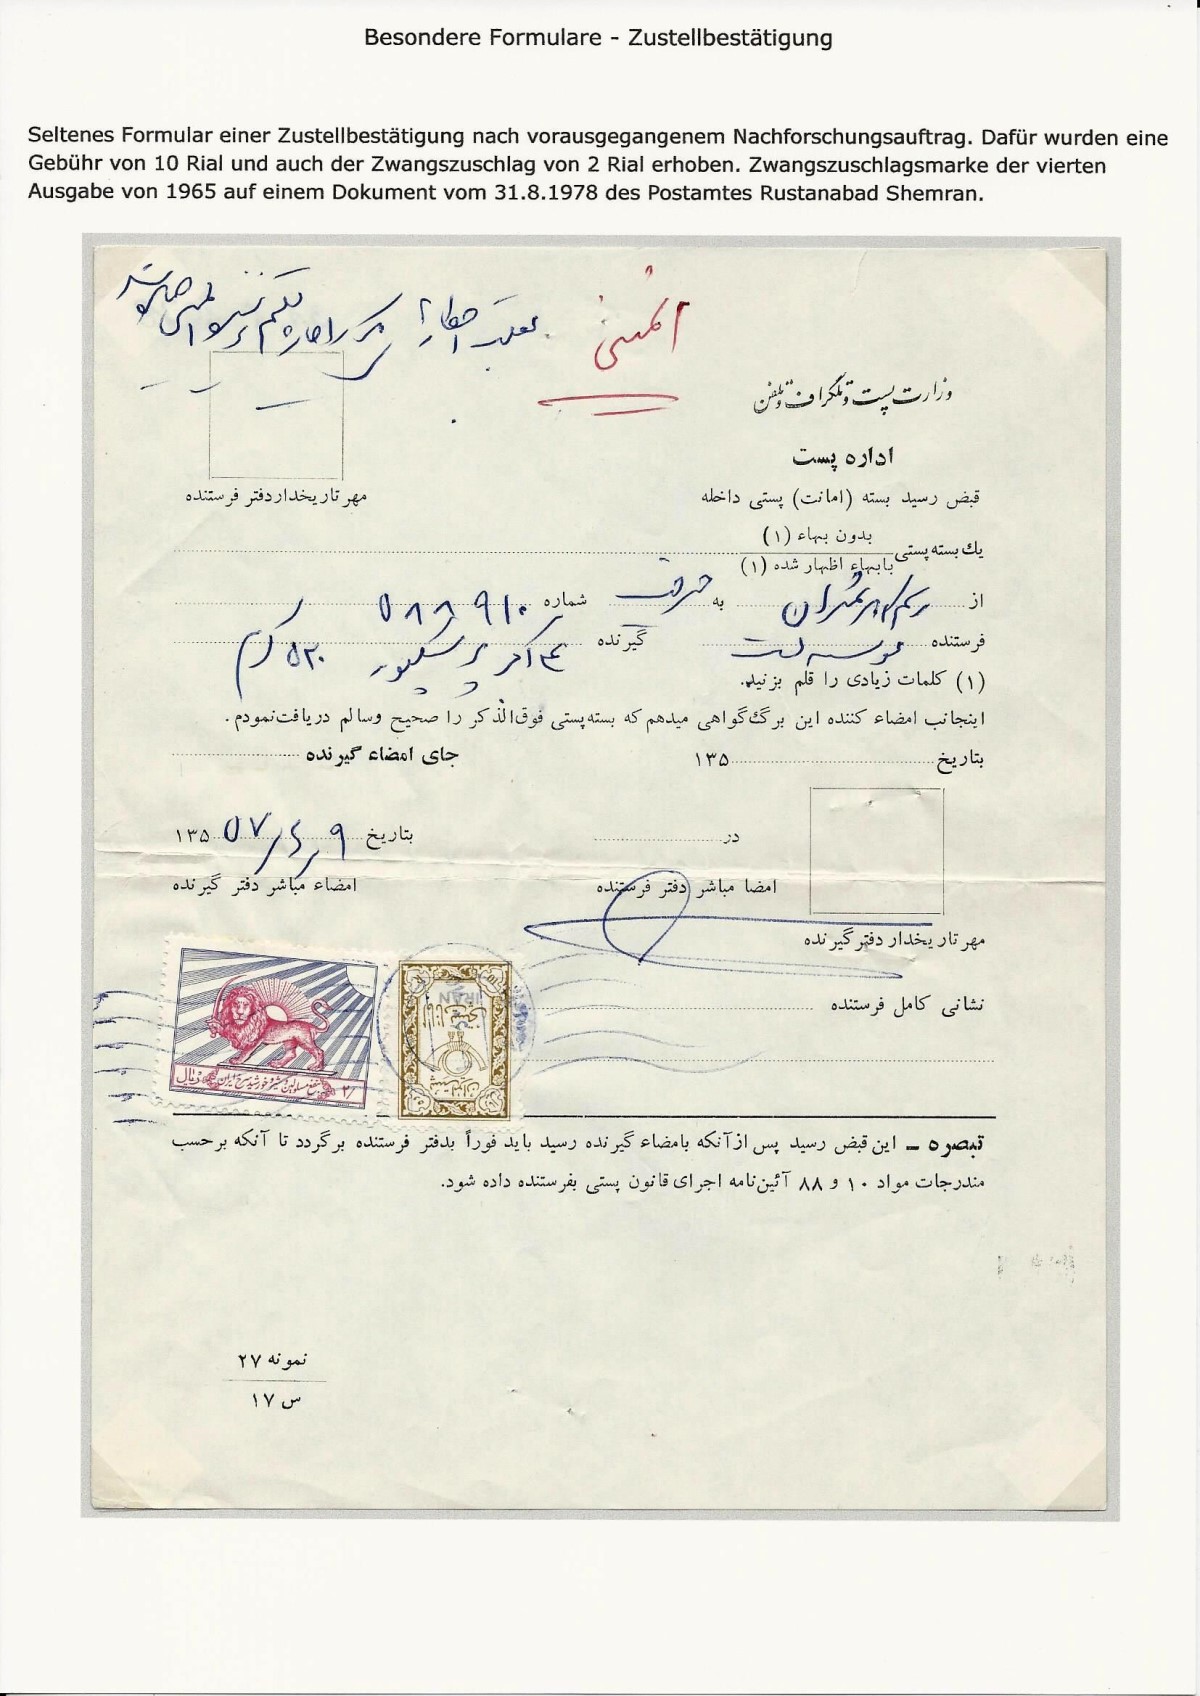 Besondere Formulare - Zustellbestätigung
Seltenes Formular einer Zustellbestätigung nach vorausgegangenem Nachforschungsauftrag. Dafür wurden eine
Gebühr von 10 Rial und auch der Zwangszuschlag von 2 Rial erhoben. Zwangszuschlagsmarke der vierten
Ausgabe von 1965 auf einem Dokument vom 31.8.1978 des Postamtes Rustanabad Shemran.
المثنی
وزارت پست و تلگراف و تلفن
اداره پست
مهر تاریخدار دفتر فرستنده
قبض رسید بسته (امانت) پستی داخله
یك بسته پستی
بدون بهاء (۱)
بابهاء اظهار شده (۱)
از به شماره ۵۸۸۹۱۰
فرستنده گیرنده ۵۲۰ گرم
(۱) کلمات زیادی را قلم بزنید.
اینجانب امضاء کننده این برگ گواهی میدهم که بسته پستی فوق‌الذکر را صحیح وسالم دریافت نمودم.
بتاریخ ۱۳۵ جای امضاء گیرنده
در بتاریخ ۹ر۶ر۵۷ ۱۳۵
امضا مباشر دفتر فرستنده امضاء مباشر دفتر گیرنده
مهر تاریخدار دفتر گیرنده
نشانی کامل فرستنده
IRAN
۲/ ریال
تبصره ــ این قبض رسید پس از آنکه بامضاء گیرنده رسید باید فوراً بدفتر فرستنده برگردد تا آنکه برحسب
مندرجات مواد ۱۰ و ۸۸ آئین‌نامه اجرای قانون پستی بفرستنده داده شود.
نمونه ۲۷
س ۱۷